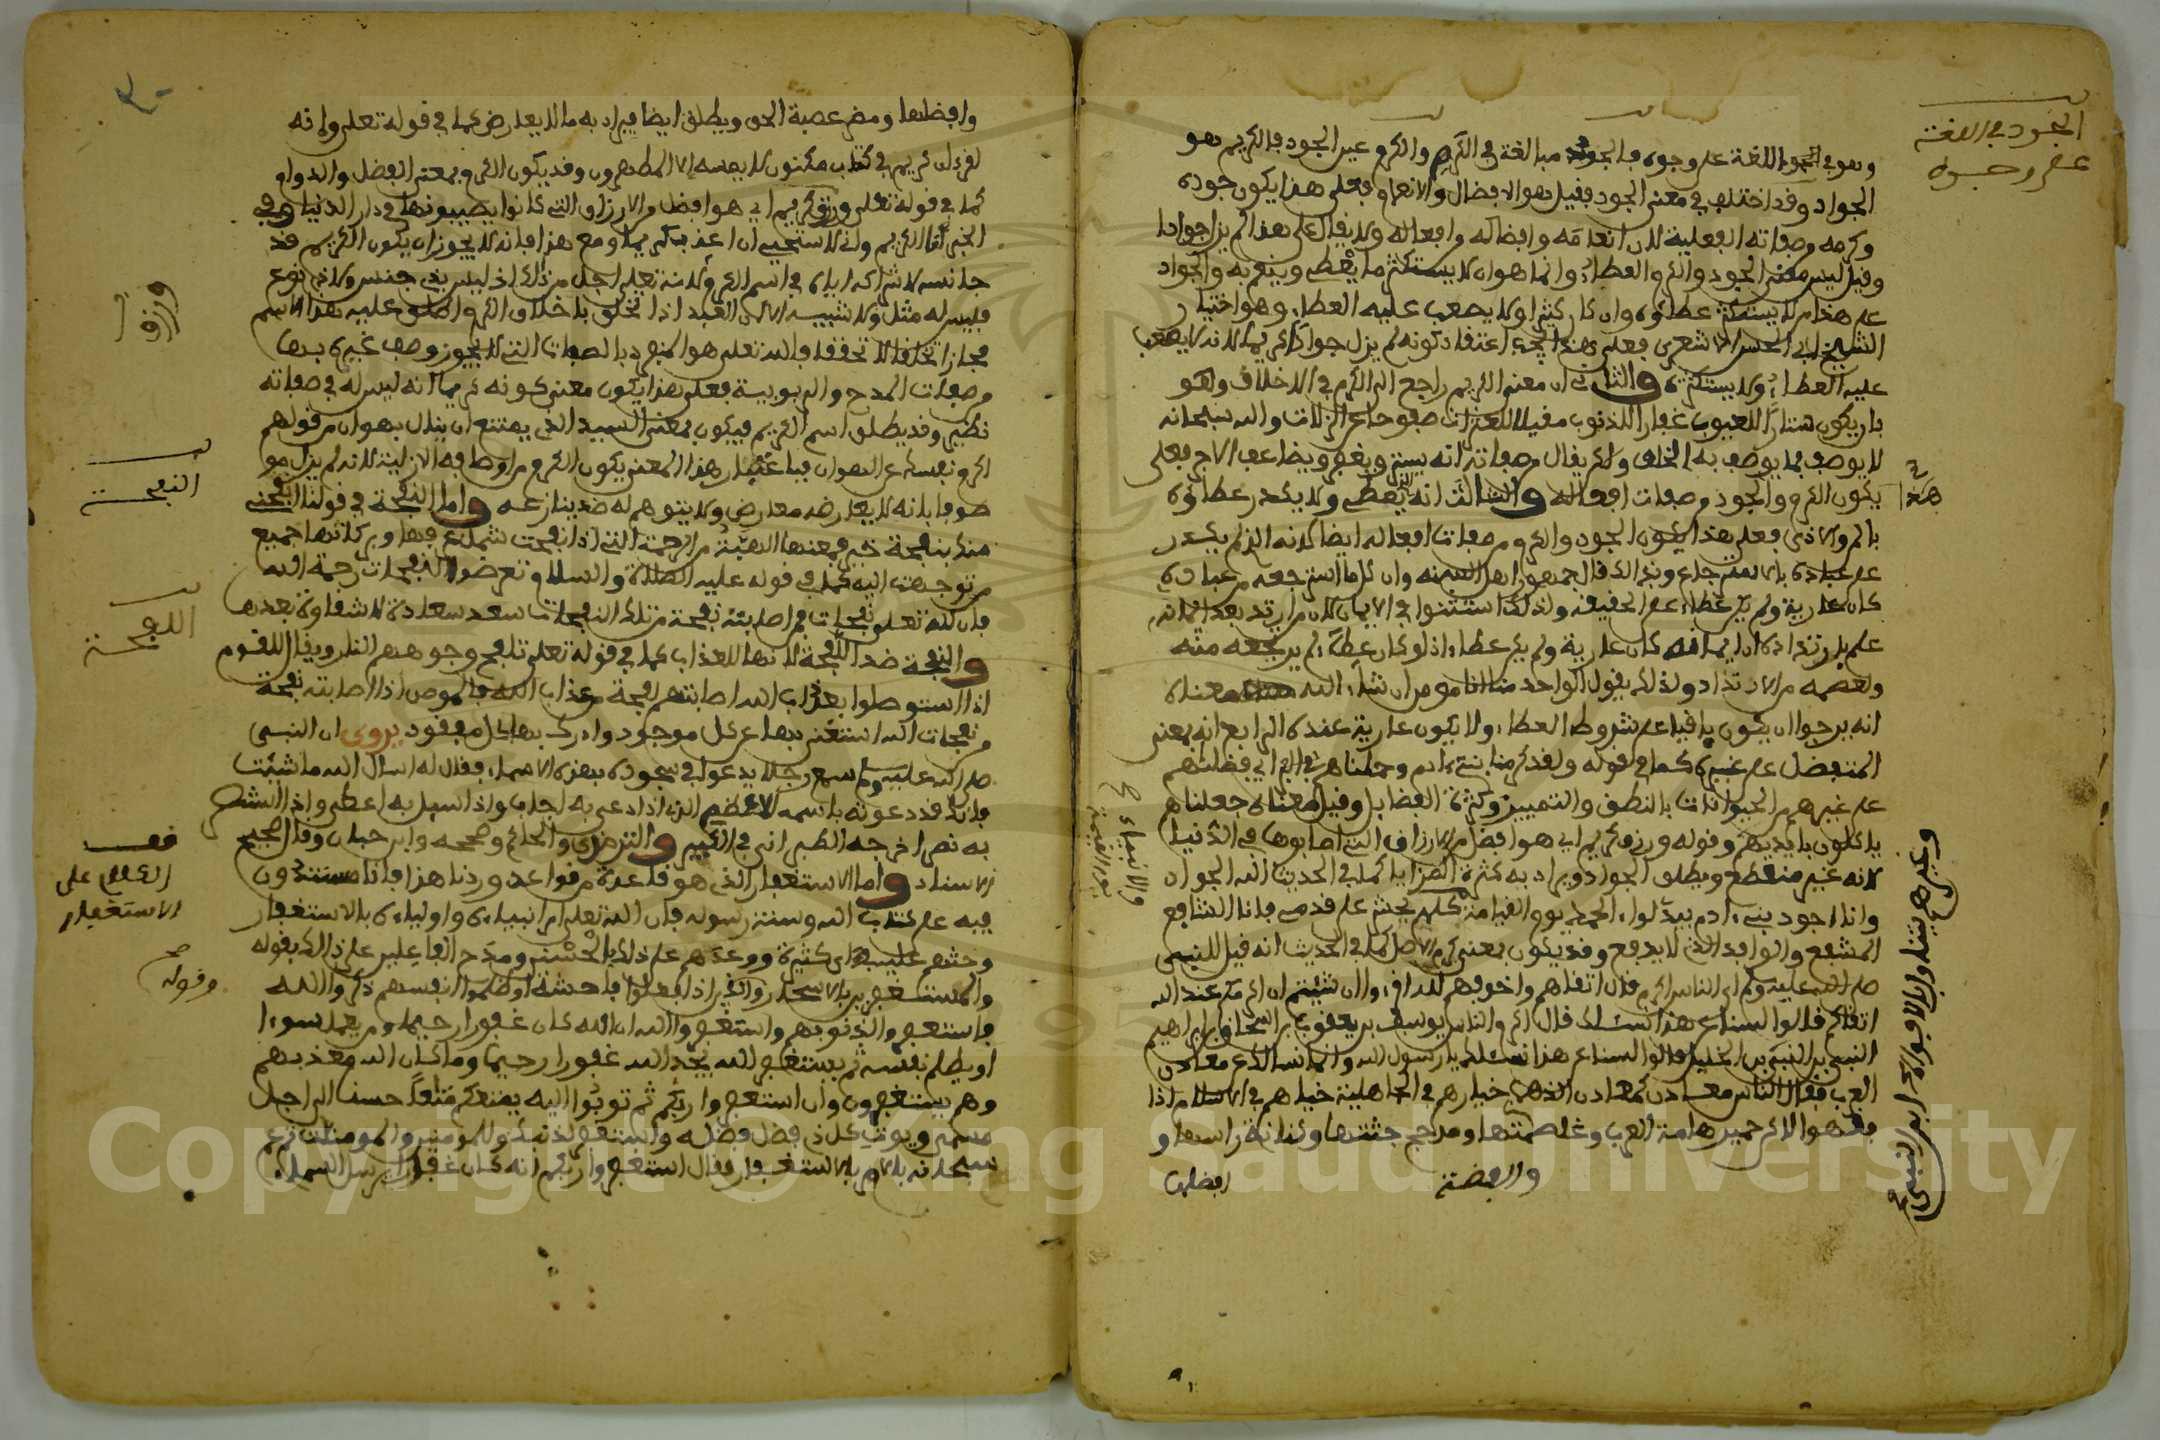 الجود في اللغة
على وجوه
وهو في اللغة على وجوه فالجود مبالغة في الكرم والكرم عين الجود فالكريم هو
الجواد وقد اختلف في معنى الجود فقيل هو الافضال والانعام فعلى هذا يكون جوده
وكرمه من صفاته الفعلية لان انعامه وافضاله وافعاله ولا يقال على هذا لم يزل جوادا
وقيل ليس معنى الجود والكرم العطاء وانما هو ان لا يستكثر ما يعطي وينعم به والجواد
على هذا من لا يستكثر عطاؤه وان كان كثيرا ولا يصعب عليه العطاء وهو اختيار
الشيخ ابي الحسن الاشعري فعلى هذا يجيء اعتقاد كونه لم يزل جوادا كريما لانه لا يصعب
عليه العطاء ولا يستكثره والثاني ان معنى الكريم راجع الى الكرم في الاخلاق وهو
بان يكون ستارا للعيوب غفارا للذنوب مقيلا للعثرات صفوحا عن الزلات والله سبحانه
لا يوصف بما يوصف به الخلق ولكن يقال من صفاته انه يستر ويغفر ويضاعف الاجر فعلى
هذا
يكون الكرم والجود من صفات افعاله والثالث انه الذي يعطي ولا يكدر عطاؤه
بالمن والاذى فعلى هذا يكون الجود والكرم من صفات افعاله ايضا لانه الذي لم يكدر
على عباده بالاسترجاع وبذلك قال جمهور اهل السنة وان كل ما استرجعه من عباده
كان عارية ولم يكن عطاء على الحقيقة ولذلك استثنوا في الايمان لان من ارتد بعد ايمانه
علم بارتداده ان ايمانه كان عارية ولم يكن عطاء اذ لو كان عطاء لم يرجعه منه
ولعصمه من الارتداد ولذلك يقول الواحد منا انا مومن ان شاء الله معناه
انه يرجو ان يكون باقيا على شروط العطاء ولا يكون عارية عنده الرابع انه بمعنى
المتفضل على غيره كما في قوله ولقد كرمنا بني ادم وحملناهم في البر اي فضلناهم
على غيرهم من الحيوانات بالنطق والتمييز وكثرة الفضايل وقيل معناه جعلناهم
ياكلون بايديهم وقوله ورزق كريم اي هو افضل من الارزاق التي اصابوها في الدنيا
لانه غير منقطع ويطلق الجواد ويراد به كثرة المزايا كما في الحديث الله الجواد
وانا اجود بني ادم بيدي لواء الحمد يوم القيامة كلهم يحشر على قدمي فانا الشافع
المشفع والوافد الذي لا يدفع وقد يكون بمعنى كرم الاصل كما في الحديث انه قيل للنبي
صلى الله عليه وسلم اي الناس اكرم قال اتقاهم واخوفهم لله اقرءوا ان شيتم ان اكرمكم عند الله
اتقاكم قالوا لسنا عن هذا نسئلك قال اكرم الناس يوسف بن يعقوب بن اسحاق بن ابراهيم
النبي بن النبي بن الخليل قالوا لسنا عن هذا نسئلك يا رسول الله وانما نسالك عن معادن
العرب فقال الناس معادن كمعادن الذهب خيارهم في الجاهلية خيارهم في الاسلام اذا
فقهوا الاكرم حمير هامة العرب وغلصمتها ومذحج جثتها وكنانة راسها و
والفضة
افضلها
وافضلها ومضر عصبة الحق ويطلق ايضا فيراد به ما لا يعارض كما في قوله تعلى وانه
لقرءان كريم في كتاب مكنون لا يمسه الا المطهرون وقد يكون الكرم بمعنى الفضل والدوام
كما في قوله تعلى ورزق كريم اي هو افضل من الارزاق التي كانوا يصيبونها في دار الدنيا وفي
الخبر انا الكريم واني لاستحيي ان اعذب كريما ومع هذا فانه لا يجوز ان يكون الكريم قد
جانسه لاشراكه اياه في اسم الكرم ولانه تعلى اجل من ذلك اذ ليس بذي جنس ولا ذي نوع
فليس له مثل ولا شبيه الا ان العبد اذا تخلق باخلاق الكرم اطلق عليه هذا الاسم
مجازا تخلقا لا تحققا فالله تعلى هو المنفرد بالصفات التي لا يجوز وصف غيره بها
وصفات المدح والربوبية فعلى هذا يكون معنى كونه كريما انه ليس له في صفاته
نظير وقد يطلق اسم الكريم فيكون بمعنى السيد الذي يمتنع ان ينال بهوان من قولهم
اكرم نفسك عن الهوان فباعتبار هذا المعنى يكون الكرم من اوصافه الازلية لانه لم يزل مو
صوفا بانه لا يعارضه معارض ولا يتوهم له ضد ينازعه واما النفحة في قولنا انفحني
منك بنفحة خير فمعناها الهبة من الرحمة التي اذا نفحت شملت عرفها وبركاتها جميع
من توجهت اليه كما في قوله عليه الصلاة والسلام تعرضوا لنفحات رحمة الله
فان لله تعلى نفحات من اصابته نفحة من تلك النفحات سعد سعادة لا شقاوة بعدها
والنفحة ضد اللفحة لانها للعذاب كما في قوله تعلى تلفح وجوههم النار ويقال للقوم
اذا استوصلوا بعذاب الله اصابتهم لفحة من عذاب الله فالمومن اذا اصابته نفحة
من نفحات الله استغنى بها عن كل موجود وادرك بها كل مفقود يروى ان النبي
صلى الله عليه وسلم سمع رجلا يدعوا في سجوده بهذه الاسماء فقال له اسال الله ما شئت
فانك قد دعوته باسمه الاعظم الذي اذا دعي به اجاب واذا سيل به اعطى واذا استنصر
به نصر اخرجه الطبراني في الكبير والترمذي والحاكم وصححه وابن حبان وقال صحيح
الاسناد واما الاستغفار الذي هو قاعدة من قواعد وردنا هذا فانا مستندون
فيه على كتاب الله وسنة رسوله فان الله تعلى امر انبياءه واولياءه بالاستغفار
وحثهم عليه في اي كثيرة ووعدهم على ذلك بالحسنى ومدح الفاعلين على ذلك بقوله
والمستغفرين بالاسحار والذين اذا فعلوا فاحشة او ظلموا انفسهم ذكروا الله
فاستغفروا لذنوبهم واستغفروا الله ان الله كان غفورا رحيما ومن يعمل سوءا
او يظلم نفسه ثم يستغفر الله يجد الله غفورا رحيما وما كان الله معذبهم
وهم يستغفرون وان استغفروا ربكم ثم توبوا اليه يمتعكم متاعا حسنا الى اجل
مسمى ويوت كل ذي فضل فضله واستغفر لذنبك وللمومنين والمومنات ثم
سبحانه بالامر بالاستغفار فقال استغفروا ربكم انه كان غفارا يرسل السماء
ورزق
النفحة
اللفحة
قف
الكلام على
الاستغفار
وقوله